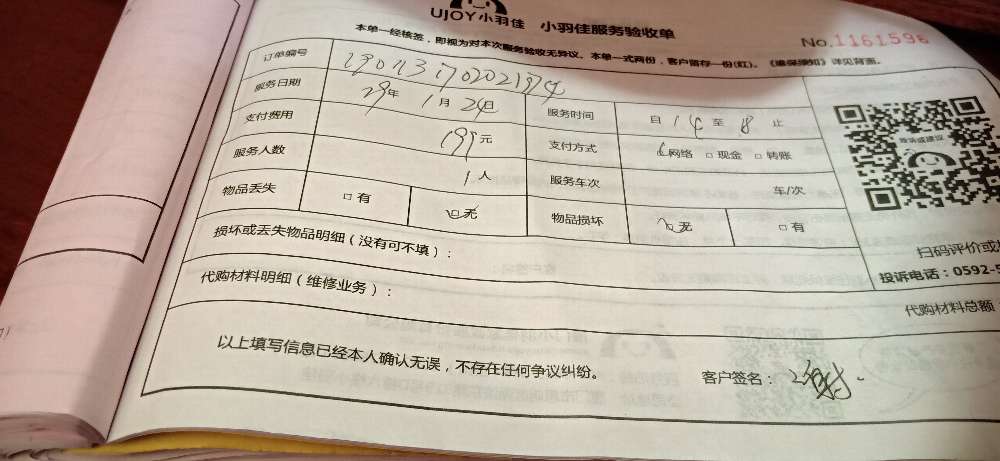 UJOY小羽佳 小羽佳服务验收单
No.1161596
本单一经核签，即视为对本次服务验收无异议。本单一式两份，客户留存一份(红)。《维保须知》详见背面。
订单编号
服务日期 29年 1月 24日 服务时间 自 14 至 18 止
支付费用 199元 支付方式 网络 □ 现金 □ 转账
服务人数 1人 服务车次 车/次
物品丢失 □ 有 □ 无 物品损坏 无 □ 有
损坏或丢失物品明细（没有可不填）：
扫码评价或
投诉电话：0592-5
代购材料明细（维修业务）：
代购材料总额
以上填写信息已经本人确认无误，不存在任何争议纠纷。
客户签名：